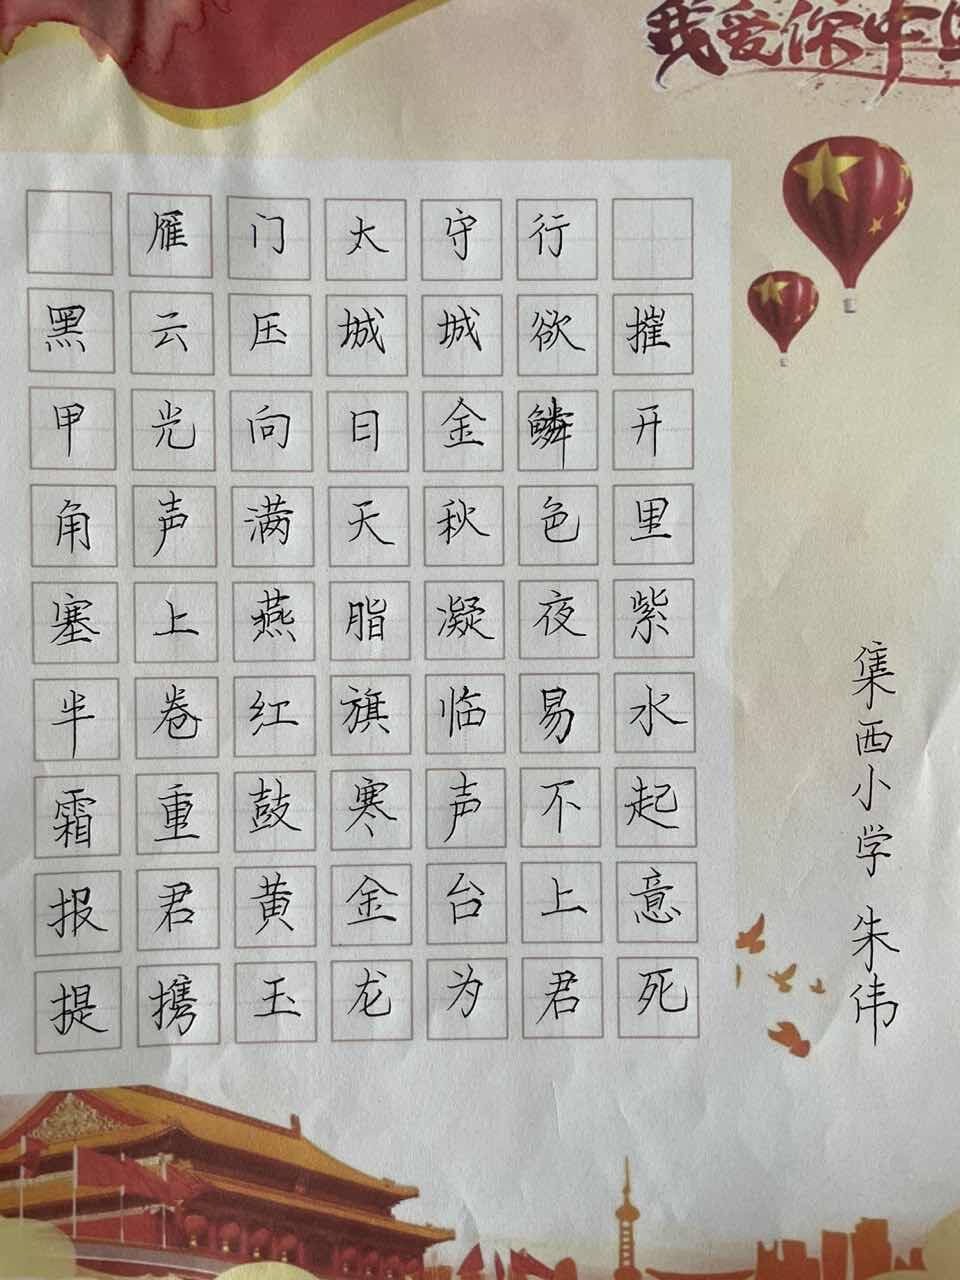 我爱你中国
雁门太守行
黑云压城城欲摧
甲光向日金鳞开
角声满天秋色里
塞上燕脂凝夜紫
半卷红旗临易水
霜重鼓寒声不起
报君黄金台上意
提携玉龙为君死
集西小学 朱伟